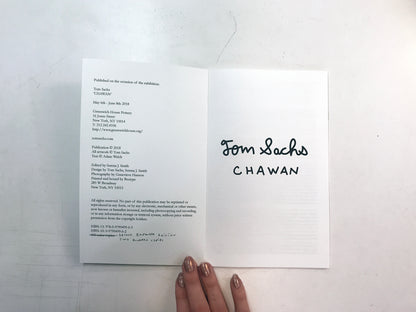 Published on the occasion of the exhibition:
Tom Sachs
"CHAWAN"
May 4th - June 9th 2018
Greenwich House Pottery
16 Jones Street
New York, NY 10014
http://www.greenwichhouse.org/
tomsachs.com
Publication © 2018
All artwork © Tom Sachs
Text © Adam Welch
Edited by Sienna J. Smith
Design by Tom Sachs, Sienna J. Smith
Photography by Genevieve Hanson
Printed and bound by Bestype
285 W Broadway
New York, NY
All rights reserved. No part of this publication may be reprinted or
reproduced in any form, or by any electronic, mechanical or other means,
now known or hereafter invented, including photocopying and recording
or in any information storage or retrieval system, without prior written
permission from the copyright holder.
Tom Sachs
CHAWAN